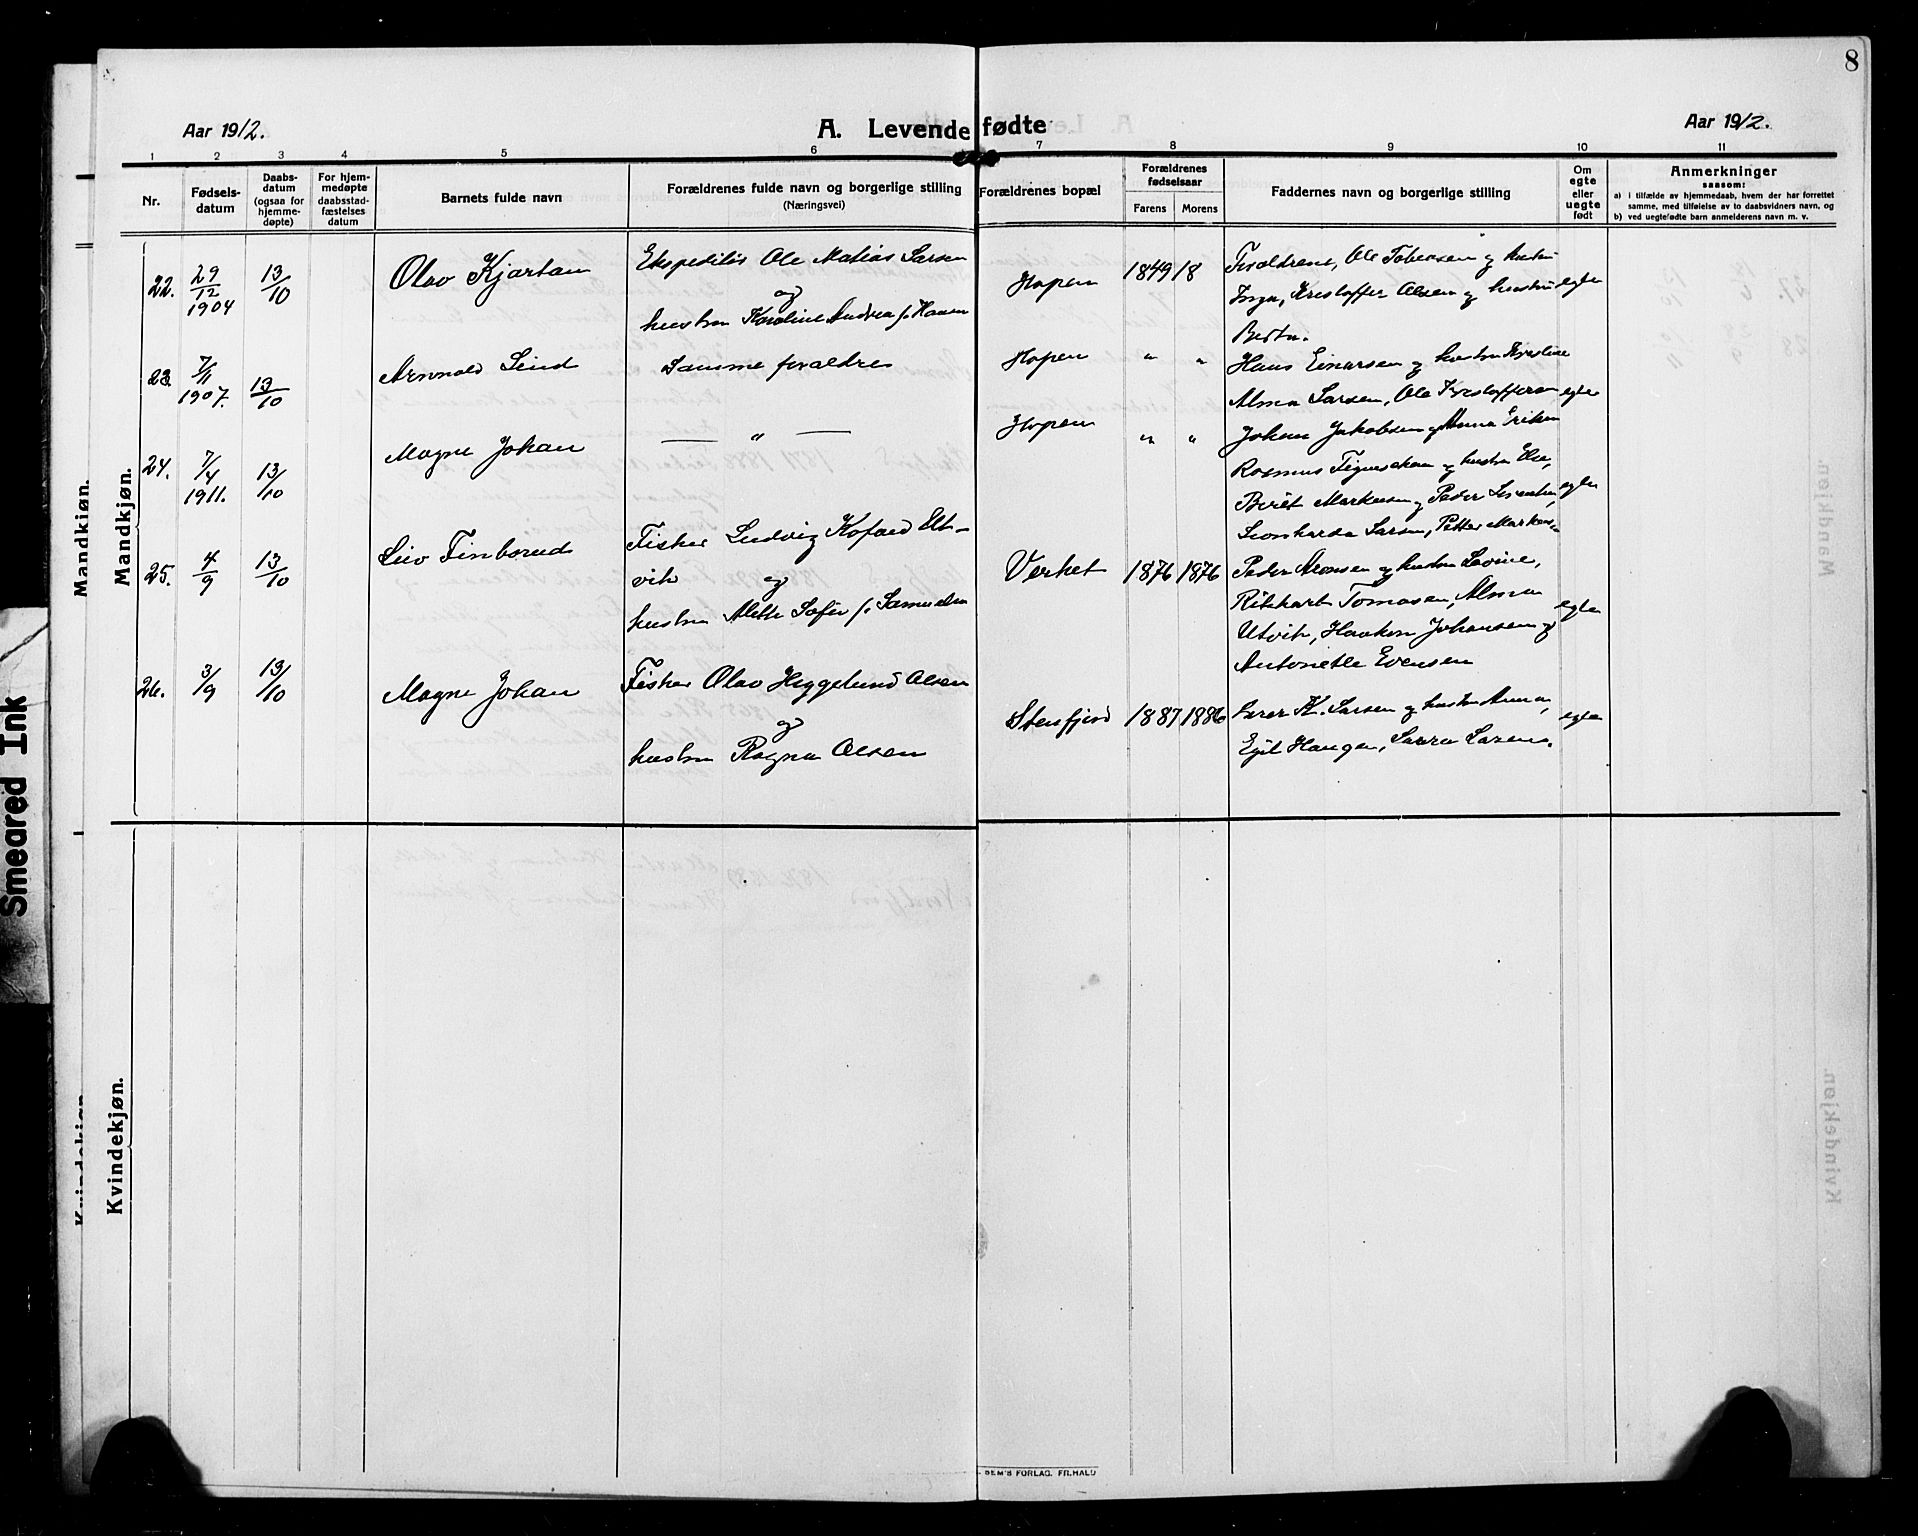 8
Aar 1912.
A. Levende fødte
Aar 1912.
1 2 3 4 5 6 7 8 9 10 11
Nr.
Fødsels-
datum
Daabs-
datum
(ogsaa for
hjemme-
døpte)
For hjem-
medøpte
daabsstad-
fæstelses
datum
Barnets fulde navn
Forældrenes fulde navn og borgerlige stilling
(Næringsvei)
Forældrenes bopæl
Forældrenes
fødselsaar
Farens Morens
Faddernes navn og borgerlige stilling
Om
egte
eller
uegte
født
Anmerkninger
saasom:
a) i tilfælde av hjemmedaab, hvem der har forrettet
samme, med tilføielse av to daabsvidners navn, og
b) ved uegtefødte barn anmelderens navn m. v.
Mandkjøn.
Mandkjøn.
22. 29/12 1904 13/10 Olav Kjartan
Ekspeditör Ole Matias Larsen
og
hustru Karoline Andrea f. Hansen
Hopen 1849 18
Forældrene, Ole Tobiassen og hustru
Inga, Kristoffer Olsen og hustru egte
Berta.
23. 7/11 1907. 13/10 Arnold Lind Samme forældre Hopen " "
Hans Einarsen og hustru Kristine
Alma Larsen, Ole Kristoffersen egte
24. 7/4 1911. 13/10 Magne Johan — " — Hopen " "
Johan Jakobsen og Anna Eriksen
Rasmus og hustru Else,
Berit Markusen og Peder egte
Leonharda Larsen, Petter Markus-
25. 4/9 13/10
Fisker Ludvig Kofoed Elt-
vik
og
hustru Alette Sofie f. Samuelsen
Verket 1876 1876
Peder Aronsen og hustru Lovise,
Rikhart Tomasen, Alma
Utvik, Haakon Johansen og egte
Antonette Evensen
26. 3/9 13/10 Magne Johan
Fisker Olav Heggelund Olsen
og
hustru Ragna Olsen
Stensfjord 1887 1886
K. Larsen og hustru Anna, egte
Egil Haugen, Larsen.
Kvindekjøn.
Kvindekjøn.
Smeared Ink
SEM'S FORLAG, FR.HALD